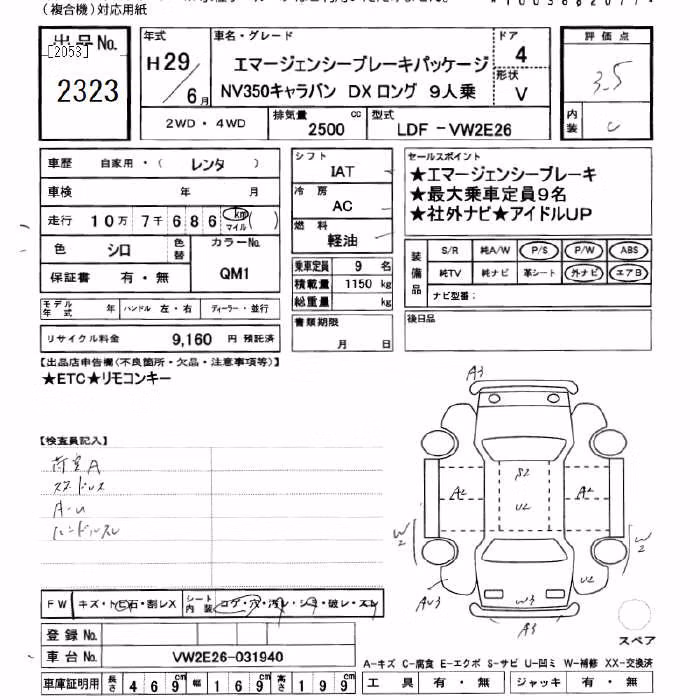 （複合機）対応用紙
出品No.
[2053]
2323
年式
H29／6月
車名・グレード
エマージェンシーブレーキパッケージ
NV350キャラバン DX ロング 9人乗
ドア
4
形状
V
2WD・4WD
排気量
2500 cc
型式
LDF-VW2E26
評価点
3.5
内装
C
車歴 自家用・（ レンタ ）
車検 年 月
走行 10万7千686 km マイル ( )
色 シロ 色替 カラーNo.
QM1
保証書 有・無
モデル年式 年 ハンドル 左・右 ディーラー・並行
リサイクル料金 9,160 円 預託済
シフト
IAT
冷房
AC
燃料
軽油
乗車定員 9 名
積載量 1150 kg
総重量 kg
書類期限
月 日
セールスポイント
★エマージェンシーブレーキ
★最大乗車定員9名
★社外ナビ★アイドルUP
装備品
S/R 純A/W P/S P/W ABS
純TV 純ナビ 革シート 外ナビ エアB
ナビ型番：
後日品
【出品店申告欄（不良箇所・欠品・注意事項等）】
★ETC★リモコンキー
【検査員記入】
荷室A
スタドレス
A-U
ハンドルスレ
A3
S2
A2 U2 A2
W2 W2
AU3 W3 U2
A3
スペア
FW キズ・トビ石・割レX シート内装 コゲ・穴・汚レ・シミ・破レ・スレ
登録No.
車台No. VW2E26-031940
車庫証明用 長さ 469cm 幅 169cm 高さ 199cm
A-キズ C-腐食 E-エクボ S-サビ U-凹ミ W-補修 XX-交換済
工具 有・無 ジャッキ 有・無